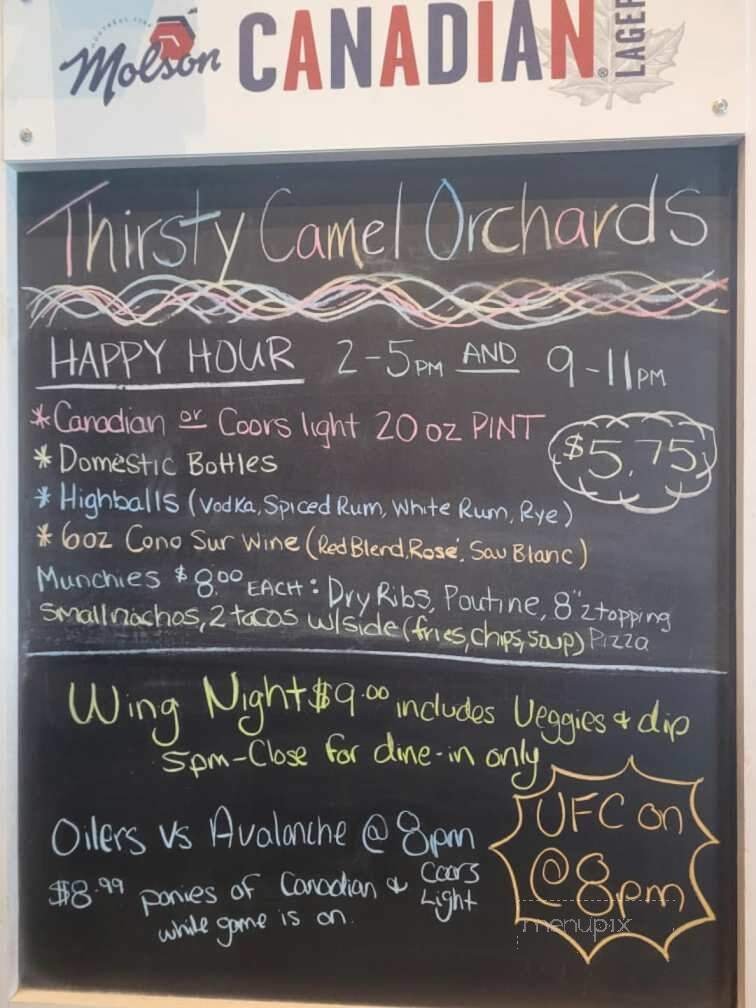 Molson CANADIAN LAGER
Thirsty Camel Orchards
HAPPY HOUR 2-5PM AND 9-11PM
*Canadian or Coors light 20oz PINT
$5.75
*Domestic Bottles
*Highballs (Vodka, Spiced Rum, White Rum, Rye)
*6oz Cono Sur Wine (Red Blend, Rosé, Sav Blanc)
Munchies $8.00 EACH: Dry Ribs, Poutine, 8" 2 topping
Small nachos, 2 tacos w/side (fries, chips, soup) Pizza
Wing Night $9.00 includes Veggies & dip
5pm-Close for dine-in only
UFC on
@8pm
Oilers vs Avalanche @ 8pm
$8.99 ponies of Canadian & Coors Light
while game is on.
menupix